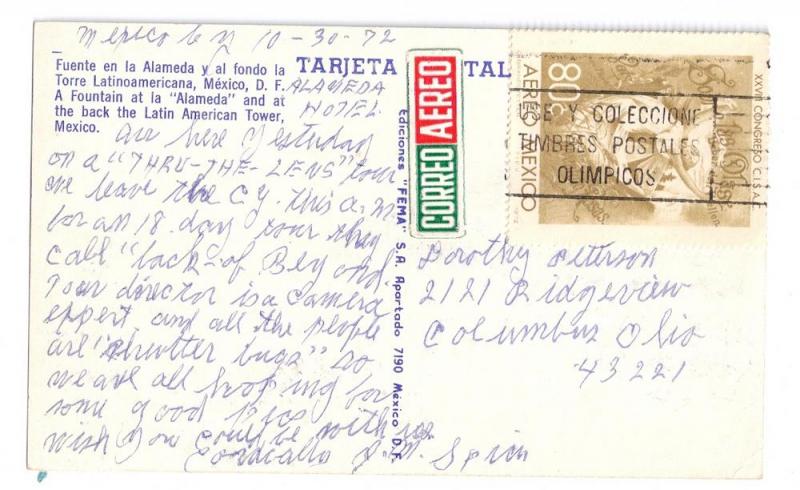 Mexico City 10-30-72
Fuente en la Alameda y al fondo la
Torre Latinoamericana, México, D. F.
A Fountain at la "Alameda" and at
the back the Latin American Tower,
Mexico.
TARJETA TAL
ALAMEDA
HOTEL
Arr here yesterday
on a "THRU-THE-LENS" tour
we leave the cy. this a.m
for an 18 day tour they
call "back-of Beyond.
Tour director is a camera
expert and all the people
are "shutter bugs" so
we are all hoping for
some good pics
wish you could be with us
Spicer
Ediciones "FEMA" S.A. Apartado 7190 México D.F.
CORREO AEREO
80¢
AEREO MEXICO
XXVIII CONGRESO C.I.S.A.C.
USE Y COLECCIONE
TIMBRES POSTALES
OLIMPICOS
Dorothy Peterson
2121 Ridgeview
Columbus Ohio
43221